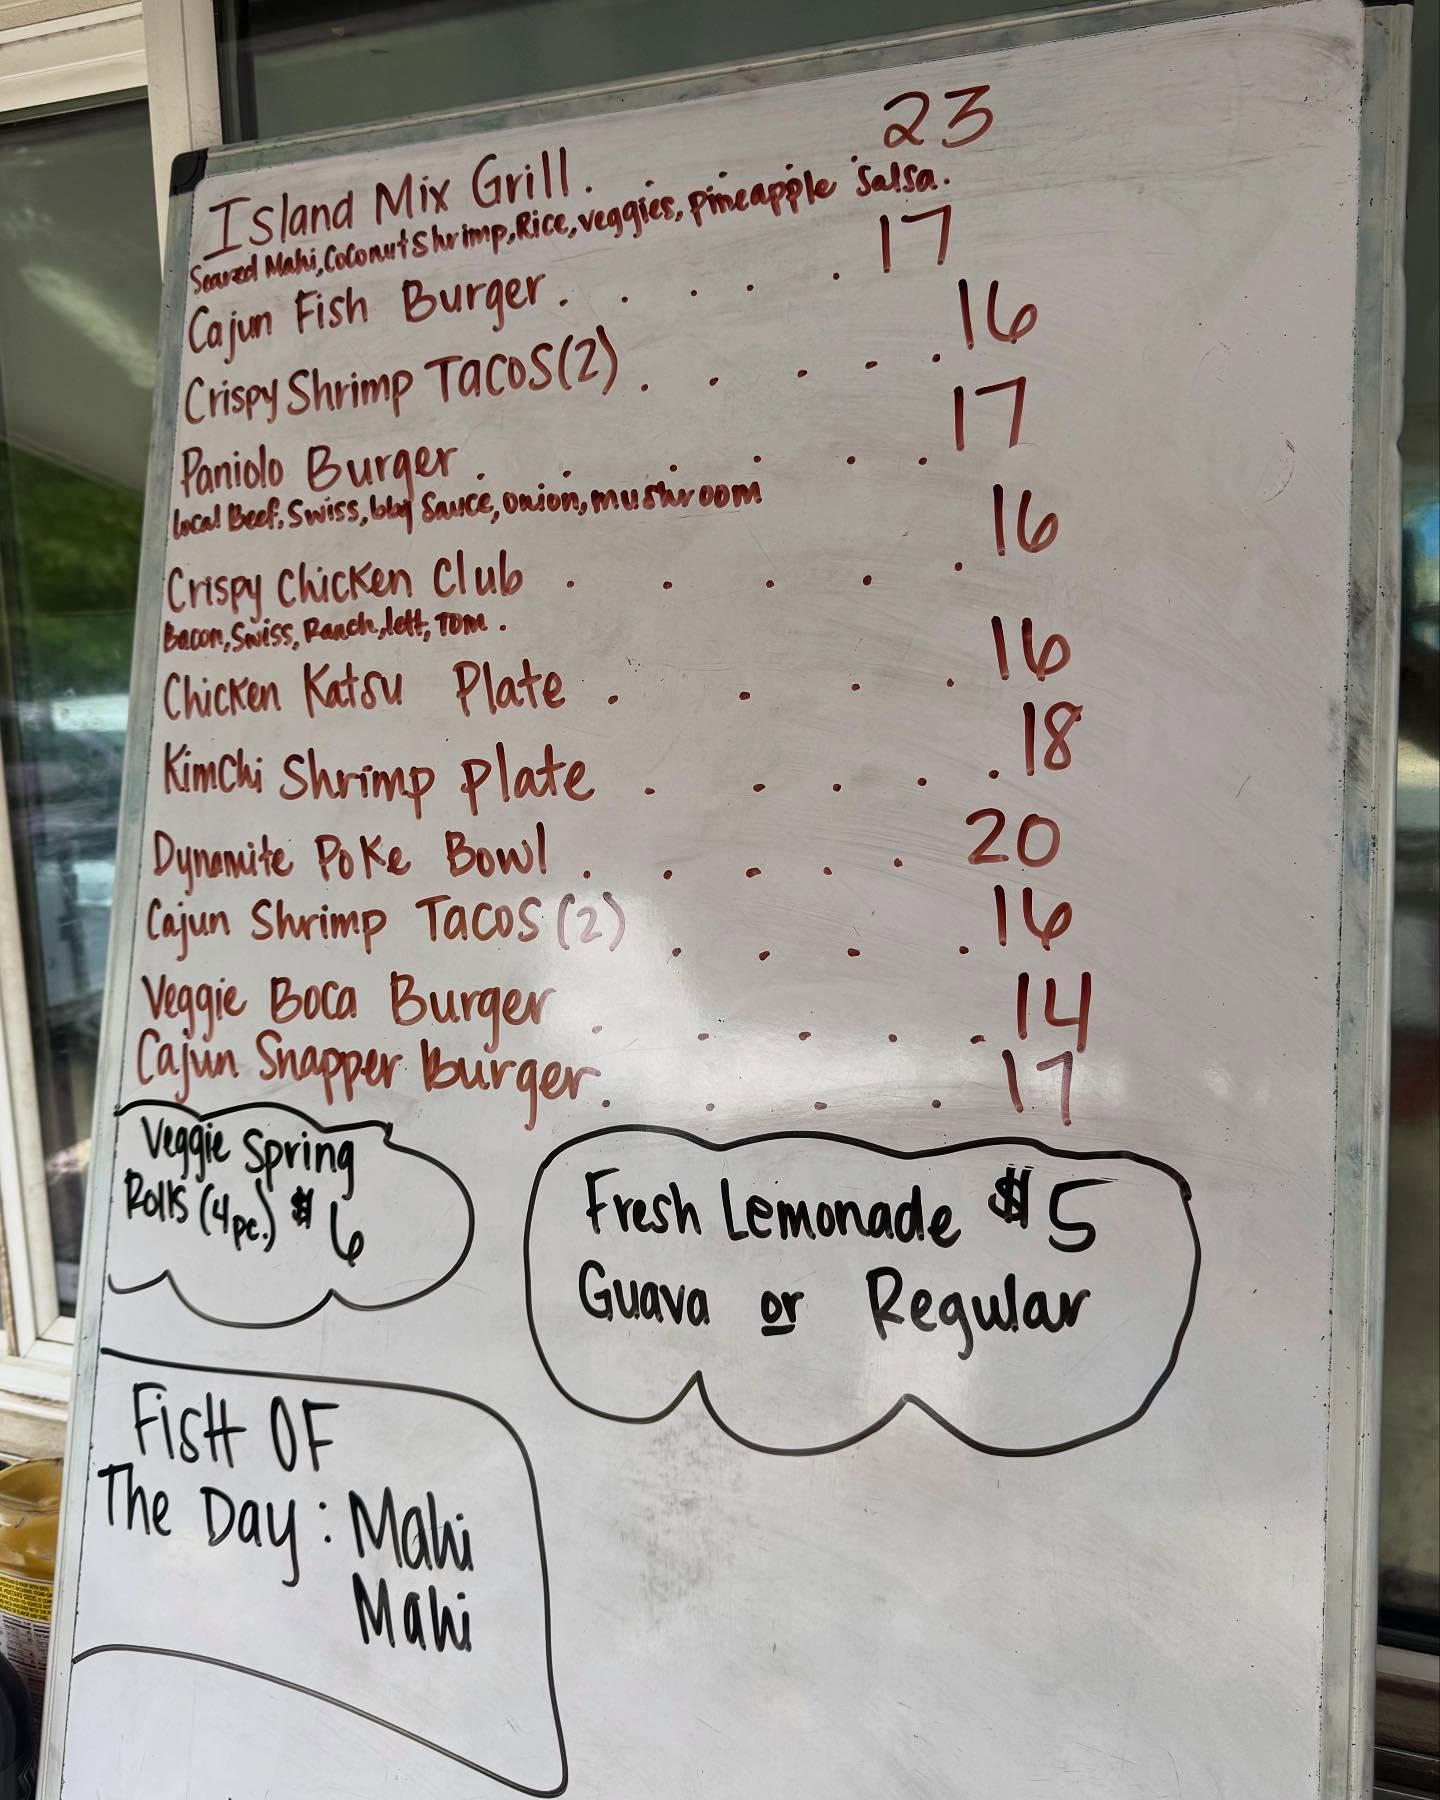 Island Mix Grill. . . . . 23
Seared Mahi, Coconut Shrimp, Rice, veggies, pineapple salsa.
Cajun Fish Burger. . . . . . 17
Crispy Shrimp Tacos (2) . . . . . 16
Paniolo Burger . . . . . . 17
local Beef, Swiss, bbq Sauce, onion, mushroom
Crispy Chicken Club . . . . . 16
Bacon, Swiss, Ranch, lett, Tom .
Chicken Katsu Plate . . . . 16
KimChi Shrimp plate . . . . . 18
Dynamite Poke Bowl . . . . . 20
Cajun Shrimp Tacos (2) . . . . 16
Veggie Boca Burger . . . . . 14
Cajun Snapper Burger . . . . 17
Veggie Spring
Rolls (4pc.) $6
Fresh Lemonade $5
Guava or Regular
FisH OF
The Day: Mahi
Mahi